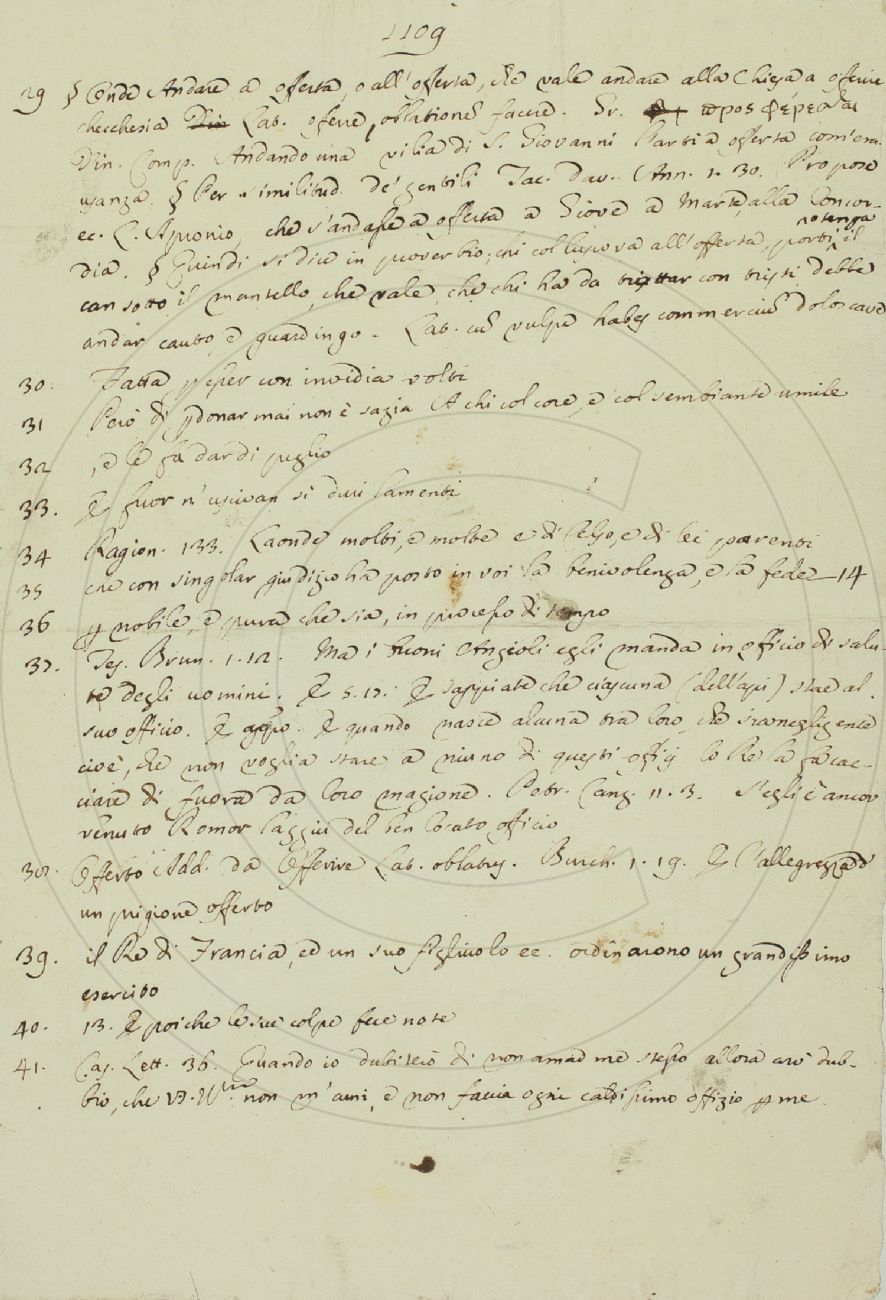 1109
29 § Onde Andare a offerta, o all'offerta, che vale andare alla Chiesa a offerire
checchesia Lat. offerre, oblationẽ facere. Gr. προσφέρεσθαι
Din. Comp. Andando una vilia di S. Giovanni l'arti a offerta com'era
usanza. § Per similitud. de' gentili Tac. Dav. Ann. 1. 30. Propose
ec. L. Apronio, che s'andasse a offerta a Giove a Marte, alla Concor-
dia. § Quindi si dice in proverbio, chi col lupo va all'offerta, porti il
can sotto il mantello, che vale, che chi ha da trattar con tristi debbe
andar cauto, e guardingo. Lat. cũ vulpe habes commerciũ dolos cave
30. Fatta p esser con invidia volti
31 Però di pdonar mai non è sazia A chi col core, e col sembiante umile
32 , e le fa dar di piglio
33. E fuor n'uscivan sì duri lamenti
34 Ragion. 133. Laonde molti, e molte e di esso, e di lei parenti
35 che con singolar giudizio ha posto in voi la benivolenza, e la fede 14
36 p nobile, e pura che sia, in processo di tempo
37. Tes. Brun. 1. 12. Ma i buoni Angioli egli manda in officio di salu-
te degli uomini. E 5. 17. E sappiate che ciascuna (dell'api) stae al
suo officio. E appo. E quando nasce alcuna tra loro, che sia negligente
cioè, che non voglia stare a niuno di questi officj lo Re la fa cac-
ciare di fuora da loro magione. Petr. Canz. 11. 3. S'egli è ancor
venuto Romor laggiù del ben locato officio
38. Offerto Add. da Offerire Lat. oblatus. Burch. 1. 19. E l'allegrezza d'
un prigione offerto
39. il Re di Francia, ed un suo figliuolo ec. ordinarono un grandissimo
esercito
40. 13. E poiche le sue colpe fece note
41. Cas. Lett. 36. Quando io dubiterò di non amar me stesso allora arò dub-
bio, che V. S. non m'ami, e non faccia ogni caldissimo offizio p me.